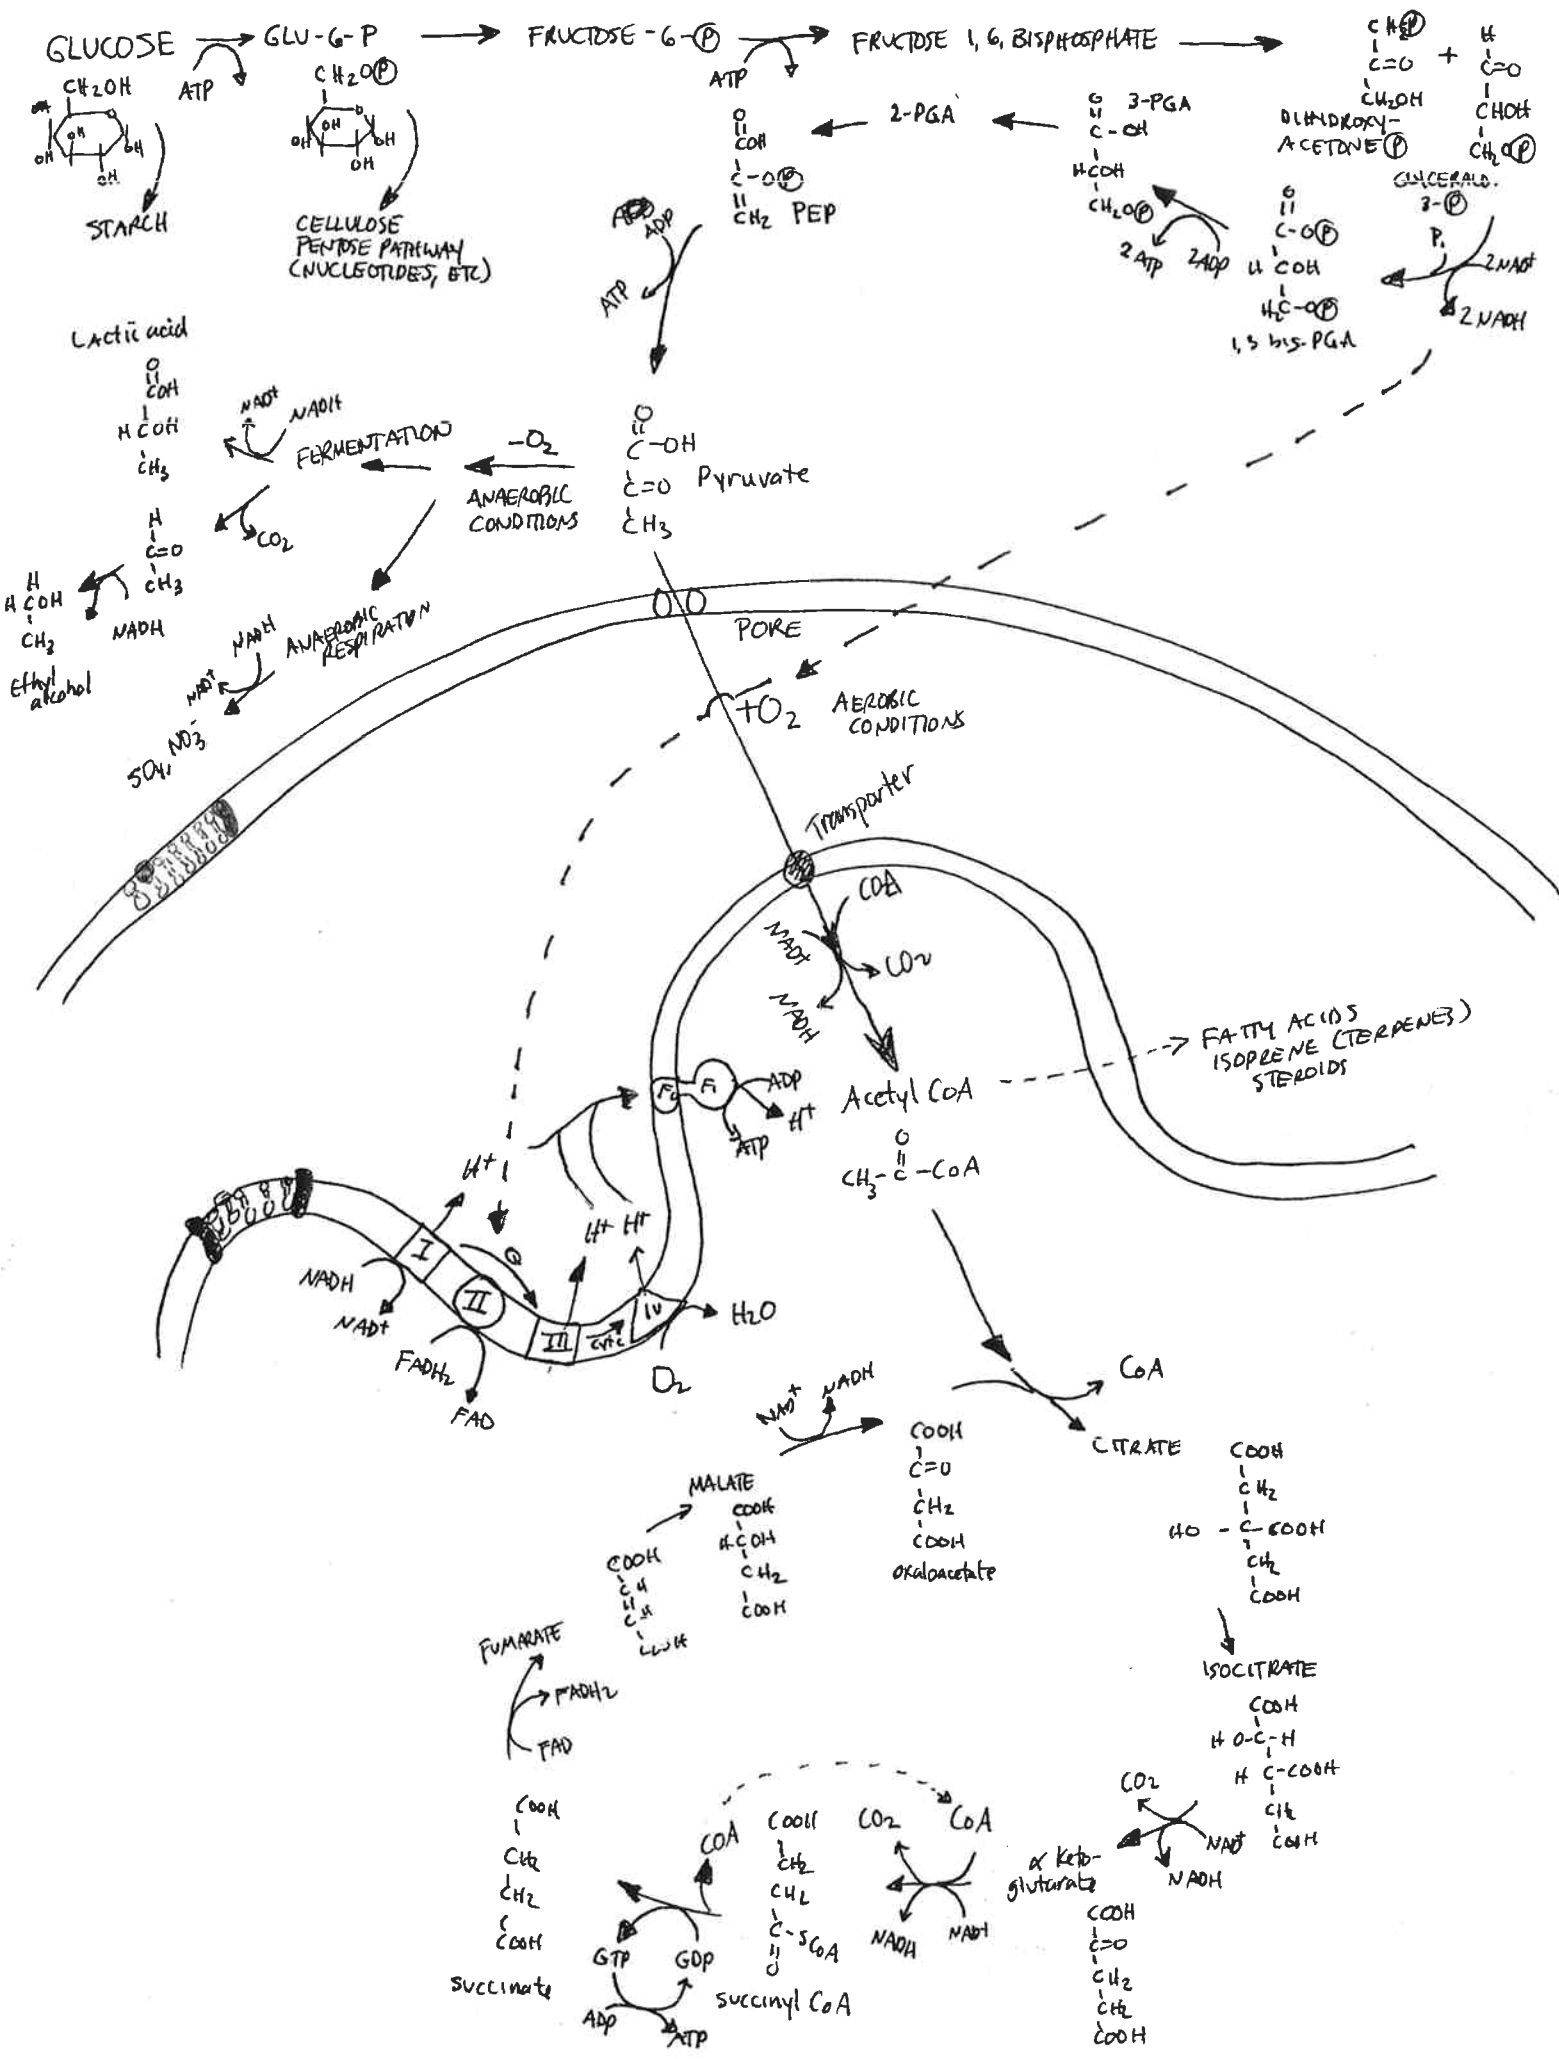 GLUCOSE
ATP
GLU-G-P
FRUCTOSE-6-P
ATP
FRUCTOSE 1, 6, BISPHOSPHATE
CH2OH
OH
OH
OH
OH
OH
STARCH
CH2OP
OH
OH
OH
OH
CELLULOSE
PENTOSE PATHWAY
(NUCLEOTIDES, ETC)
C=O
CH2OH
DIHYDROXY-
ACETONE P
+
H
C=O
CHOH
CH2OP
GLYCERALD.
3-P
Pi
2NAD+
2NADH
O
C-OP
H COH
H2C-OP
1,3 bis-PGA
2ADP
2ATP
O
3-PGA
C-OH
HCOH
CH2OP
2-PGA
O
COH
C-OP
CH2
PEP
ADP
ATP
O
C-OH
C=O
CH3
Pyruvate
-O2
ANAEROBIC
CONDITIONS
FERMENTATION
NADH
NAD+
Lactic acid
O
COH
H COH
CH3
CO2
H
C=O
CH3
NADH
H
H COH
CH3
Ethyl
alcohol
ANAEROBIC
RESPIRATION
NADH
NAD+
SO4, NO3-
PORE
+O2
AEROBIC
CONDITIONS
Transporter
COA
NAD+
CO2
NADH
FATTY ACIDS
ISOPRENE (TERPENES)
STEROIDS
Acetyl CoA
O
CH3-C-CoA
Fo
F1
ADP
H+
ATP
H+
H+
H+
I
Q
II
III
cytc
IV
NADH
NAD+
FADH2
FAD
H2O
O2
CoA
CITRATE
COOH
CH2
HO-C-COOH
CH2
COOH
ISOCITRATE
COOH
HO-C-H
H C-COOH
CH2
COOH
CO2
NAD+
NADH
α Keto-
glutarate
COOH
C=O
CH2
CH2
COOH
CoA
CO2
NAD+
NADH
COOH
CH2
CH2
C-SCoA
O
Succinyl CoA
COA
GTP
GDP
ADP
ATP
COOH
CH2
CH2
COOH
Succinate
FAD
FADH2
FUMARATE
COOH
CH
CH
MALATE
COOH
HCOH
CH2
COOH
NAD+
NADH
COOH
C=O
CH2
COOH
oxaloacetate